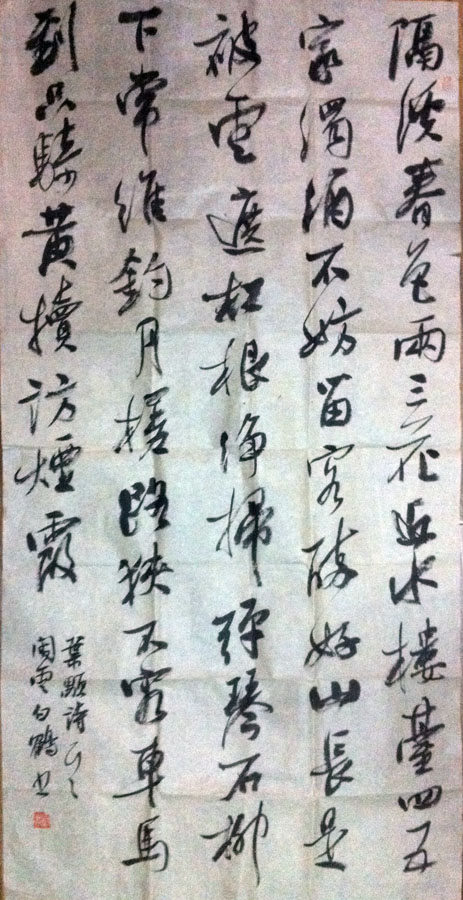 隔溪春色兩三花近水樓臺四五
家濁酒不妨留客醉好山長是
被雲遮松根淨掃彈琴石柳
下常維釣月槎路狹不容車馬
到只騎黃犢訪煙霞
葉顒詩
雲白鶴書